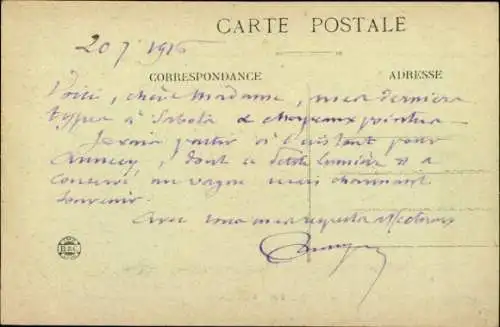 CARTE POSTALE
20 7 1916
CORRESPONDANCE
ADRESSE
Voici, chère Madame, mes derniers
types à sabots & chapeaux pointus
Je vais partir à l'instant pour
Annecy, dont
conservé, un vague mais charmant
souvenir.
Avec tous mes respects affectueux
B&C